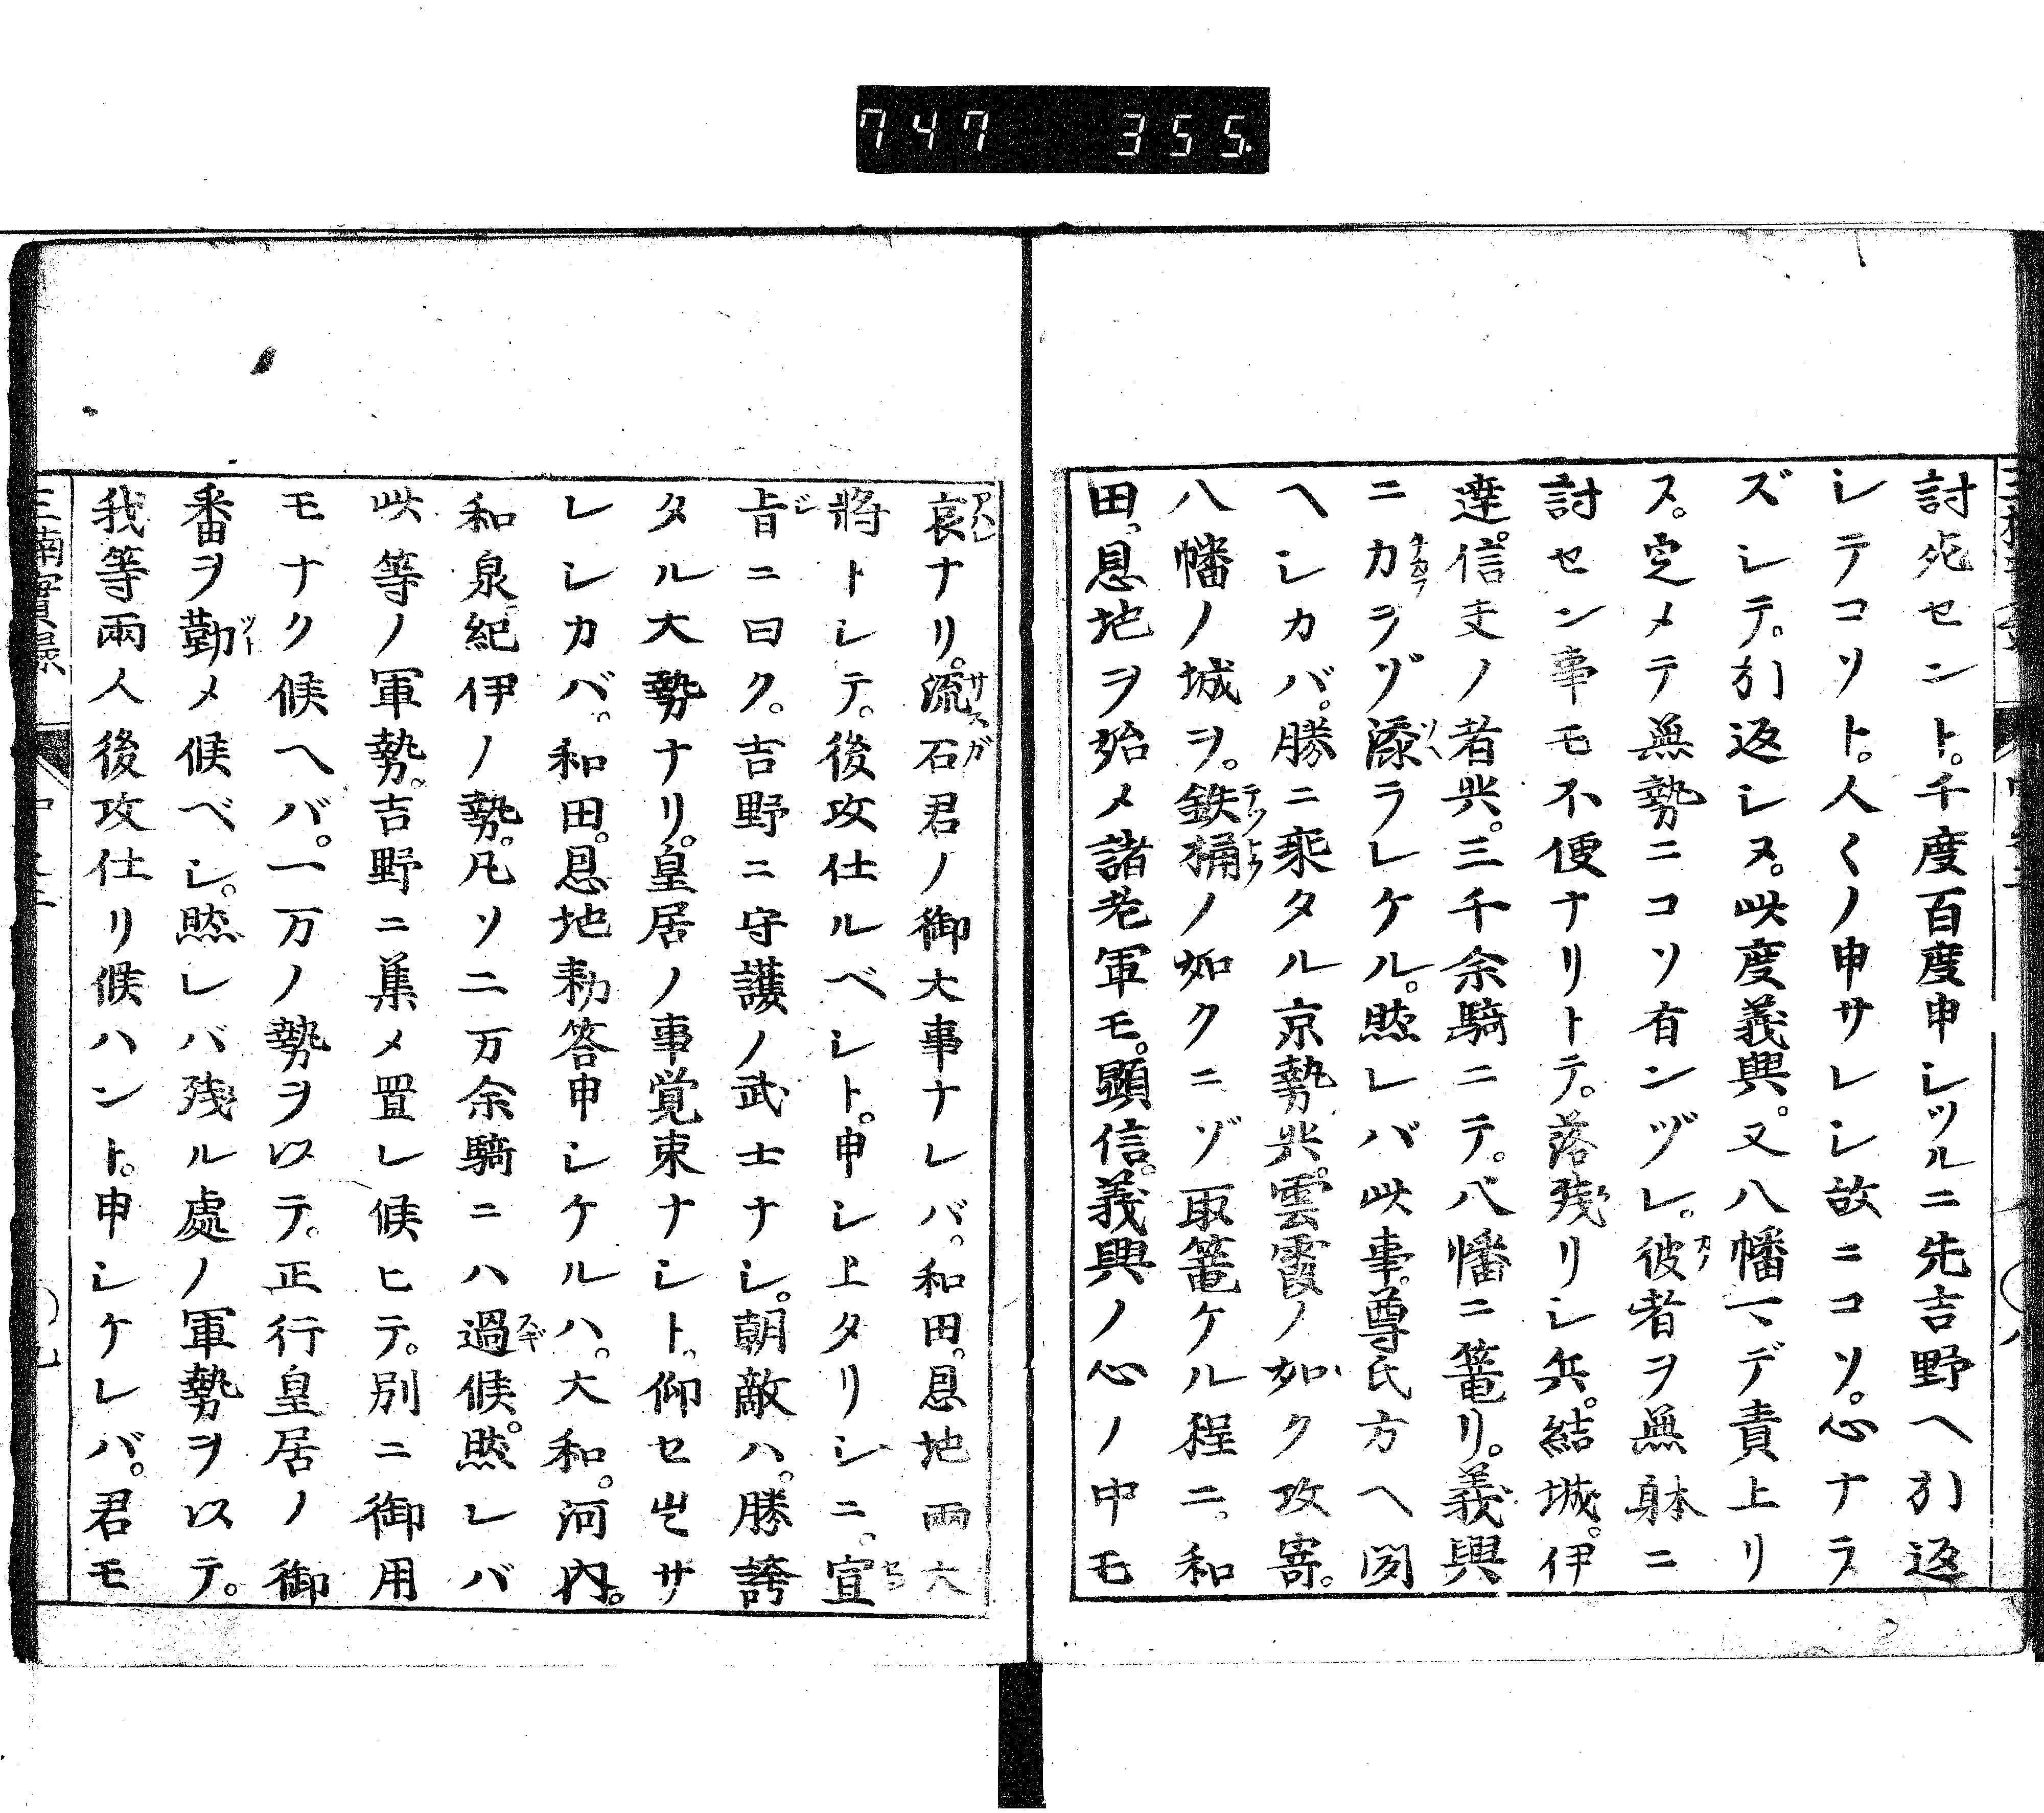 747 355.
討死セント。千度百度申シツルニ先吉野ヘ引返
シテコソト。人〱ノ申サレシ故ニコソ。心ナラ
ズシテ。引返シヌ。此度義興。又八幡マデ責上リ
ス。定メテ無勢ニコソ有ンヅレ。彼者ヲ無躰ニ
討セン事モ不便ナリトテ。落残リシ兵。結城。伊
達。信夫ノ者共。三千余騎ニテ。八幡ニ篭リ。義興
ニカラヅ添ラレケル。然レバ此事。尊氏方ヘ聞
ヘシカバ。勝ニ乗タル京勢共。雲霞ノ如ク攻寄。
八幡ノ城ヲ。鉄桶ノ如クニゾ取篭ケル程ニ。和
田。恩地ヲ始メ諸老軍モ。顕信。義興ノ心ノ中モ
哀ナリ。流石君ノ御大事ナレバ。和田。恩地両大
将トシテ。後攻仕ルベシト。申シ上タリシニ。宣
旨ニ曰ク。吉野ニ守護ノ武士ナシ。朝敵ハ。勝誇
タル大勢ナリ。皇居ノ事覚束ナシト。仰セ出サ
レシカバ。和田。恩地勅答申シケルハ。大和。河内。
和泉。紀伊ノ勢。凡ソ二万余騎ニハ過候。然レバ
此等ノ軍勢。吉野ニ集メ置レ候ヒテ。別ニ御用
モナク候ヘバ。一万ノ勢ヲ以テ。正行皇居ノ御
番ヲ勤メ候ベシ。然レバ残ル處ノ軍勢ヲ以テ。
我等両人後攻仕リ候ハント。申シケレバ。君モ
三楠實録